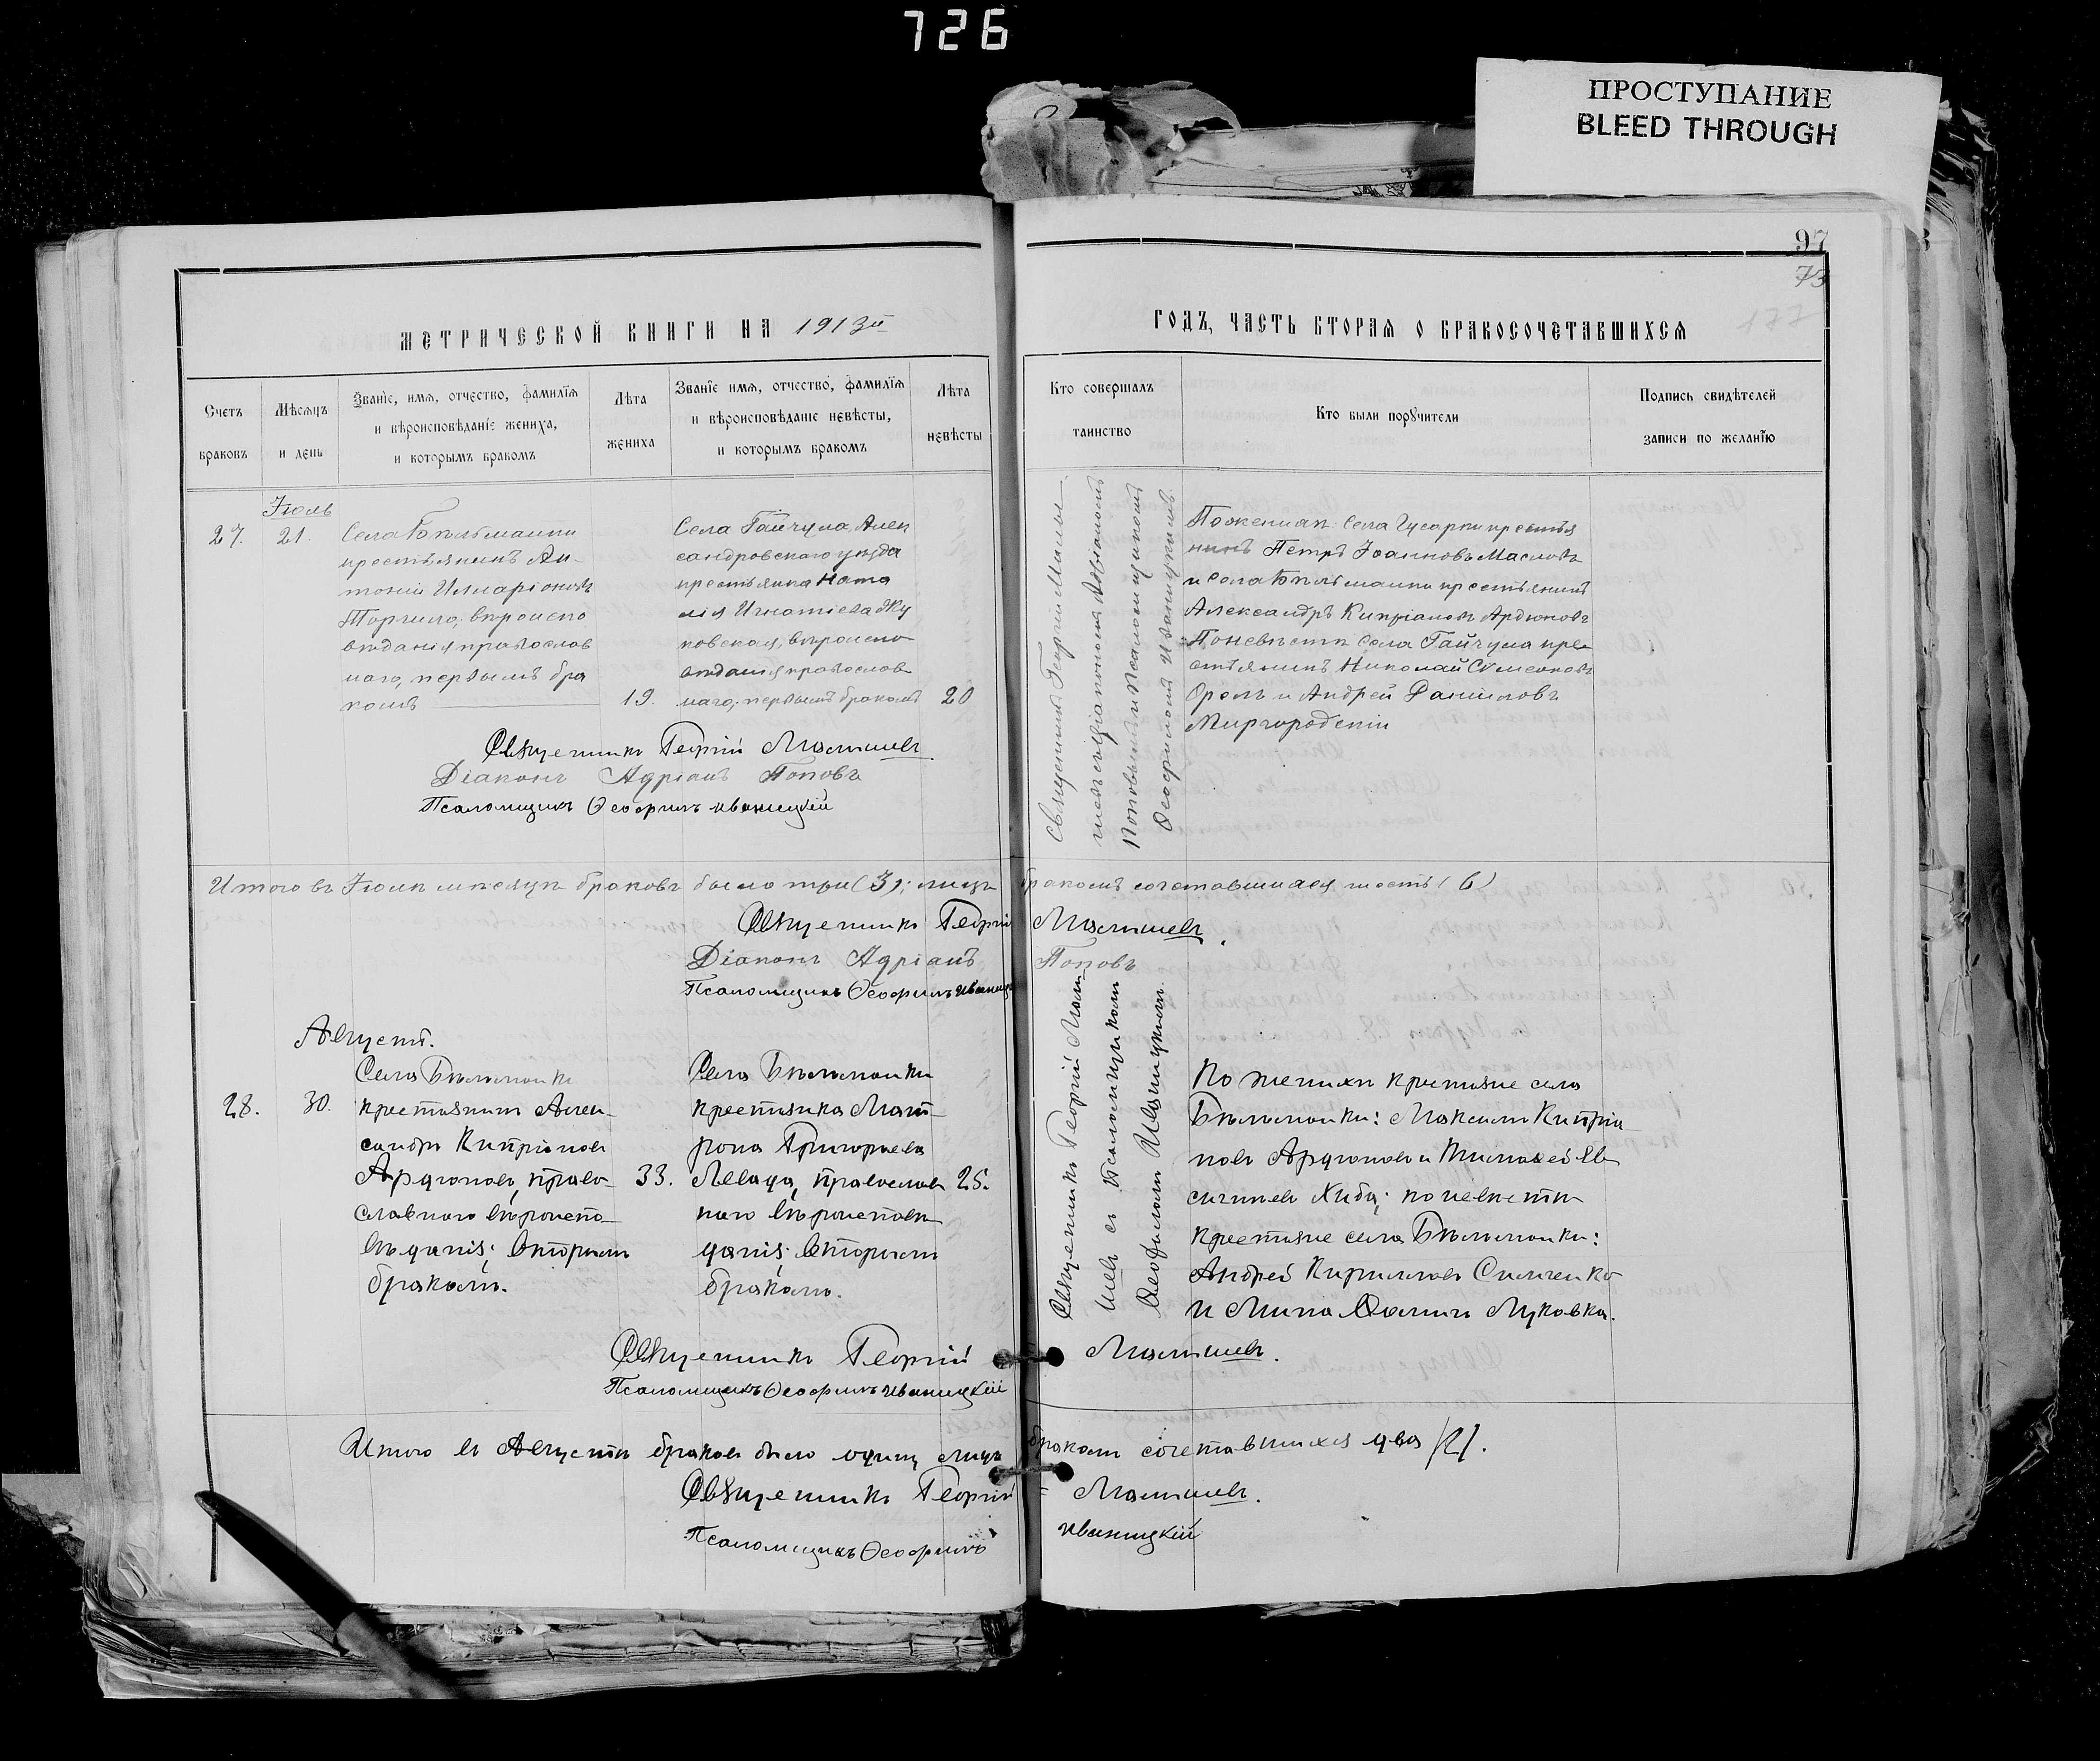 726
ПРОСТУПАНИЕ
BLEED THROUGH
97
73
177
МЕТРИЧЕСКОЙ КНИГИ НА 1913й
ГОДЪ, ЧАСТЬ ВТОРАЯ О БРАКОСОЧЕТАВШИХСЯ
Счетъ
браковъ
Мѣсяцъ
и день
Званіе, имя, отчество, фамилія
и вѣроисповѣданіе жениха,
и которымъ бракомъ
Лѣта
жениха
Званіе имя, отчество, фамилія
и вѣроисповѣданіе невѣсты,
и которымъ бракомъ
Лѣта
невѣсты
Кто совершалъ
таинство
Кто были поручители
Подпись свидѣтелей
записи по желанію
Іюль
27.
21.
Села Бѣльманки
крестьянинъ Ан-
тоній Иларіоновъ
Торчило, вѣроиспо
вѣданія православ
наго, первымъ бра
комъ
19.
Села Гайчула, Алек
сандровскаго уѣзда
крестьянка Ната
лія Игнатіева Жу
ковская, вѣроиспо
вѣданія православ
наго, первымъ бракомъ
20
Священникъ Георгій Малы
шевъ съ діакономъ Адріаномъ
Поповымъ и псаломщикомъ
Ѳеофиломъ Иваницкимъ.
По женихѣ: села Гусарки крестья
нинъ Петръ Іоанновъ Масловъ
и села Бѣльманки крестьянинъ
Александръ Кипріановъ Ардюновъ
По невѣстѣ села Гайчула кре
стьянинъ Николай Симеоновъ
Орелъ и Андрей Даніиловъ
Миргородскій
Священникъ Георгій Малышевъ
Діаконъ Адріанъ Поповъ
Псаломщикъ Ѳеофилъ Иваницкій
Итого въ Іюлѣ мѣсяцѣ браковъ было три (3); лицъ бракомъ сочетавшихся шесть (6)
Священникъ Георгій Малышевъ.
Діаконъ Адріанъ Поповъ
Псаломщикъ Ѳеофилъ Иваниц
Августъ.
28.
30.
Села Бѣльманки
крестьянинъ Алек-
сандръ Кипріановъ
Ардюновъ, право-
славнаго вѣроиспо-
вѣданія; вторымъ
бракомъ.
33.
Села Бѣльманки
крестьянка Мат-
рона Григорьева
Левада, православ
наго вѣроисповѣ
данія; вторымъ
бракомъ.
25.
Священникъ Георгій Малы-
шевъ съ псаломщикомъ
Ѳеофиломъ Иваницкимъ.
По женихѣ крестьяне села
Бѣльманки: Максимъ Кипріа-
новъ Ардюновъ и Тимоѳей Ев
сигніевъ Хиба; по невѣстѣ
крестьяне села Бѣльманки:
Андрей Кирилловъ Симченко
и Мина Ѳомичъ Луковка.
Священникъ Георгій Малышевъ.
Псаломщикъ Ѳеофилъ Иваницкій
Итого въ Августѣ браковъ было одинъ, лицъ бракомъ сочетавшихся два /2/.
Священникъ Георгій Малышевъ.
Псаломщикъ Ѳеофилъ Иваницкій